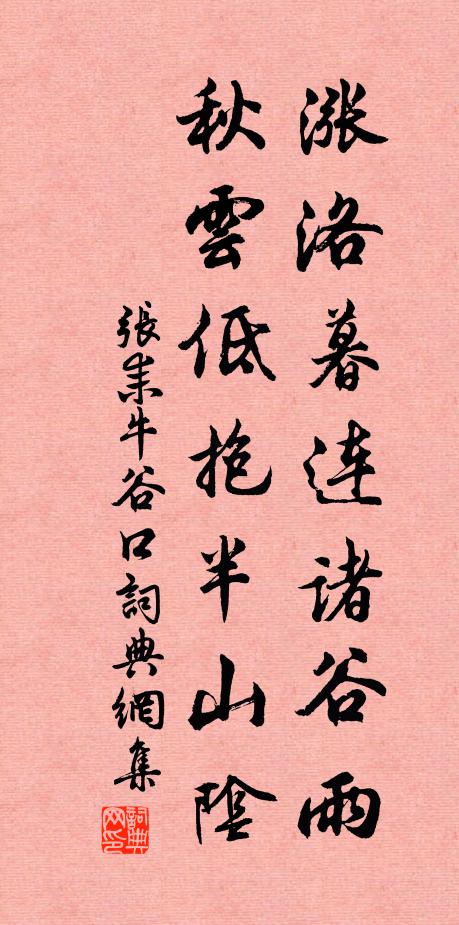 涨洛暮连诸谷雨
秋雲低抱半山陰
張耒牛谷口詞典網集
詞典网印